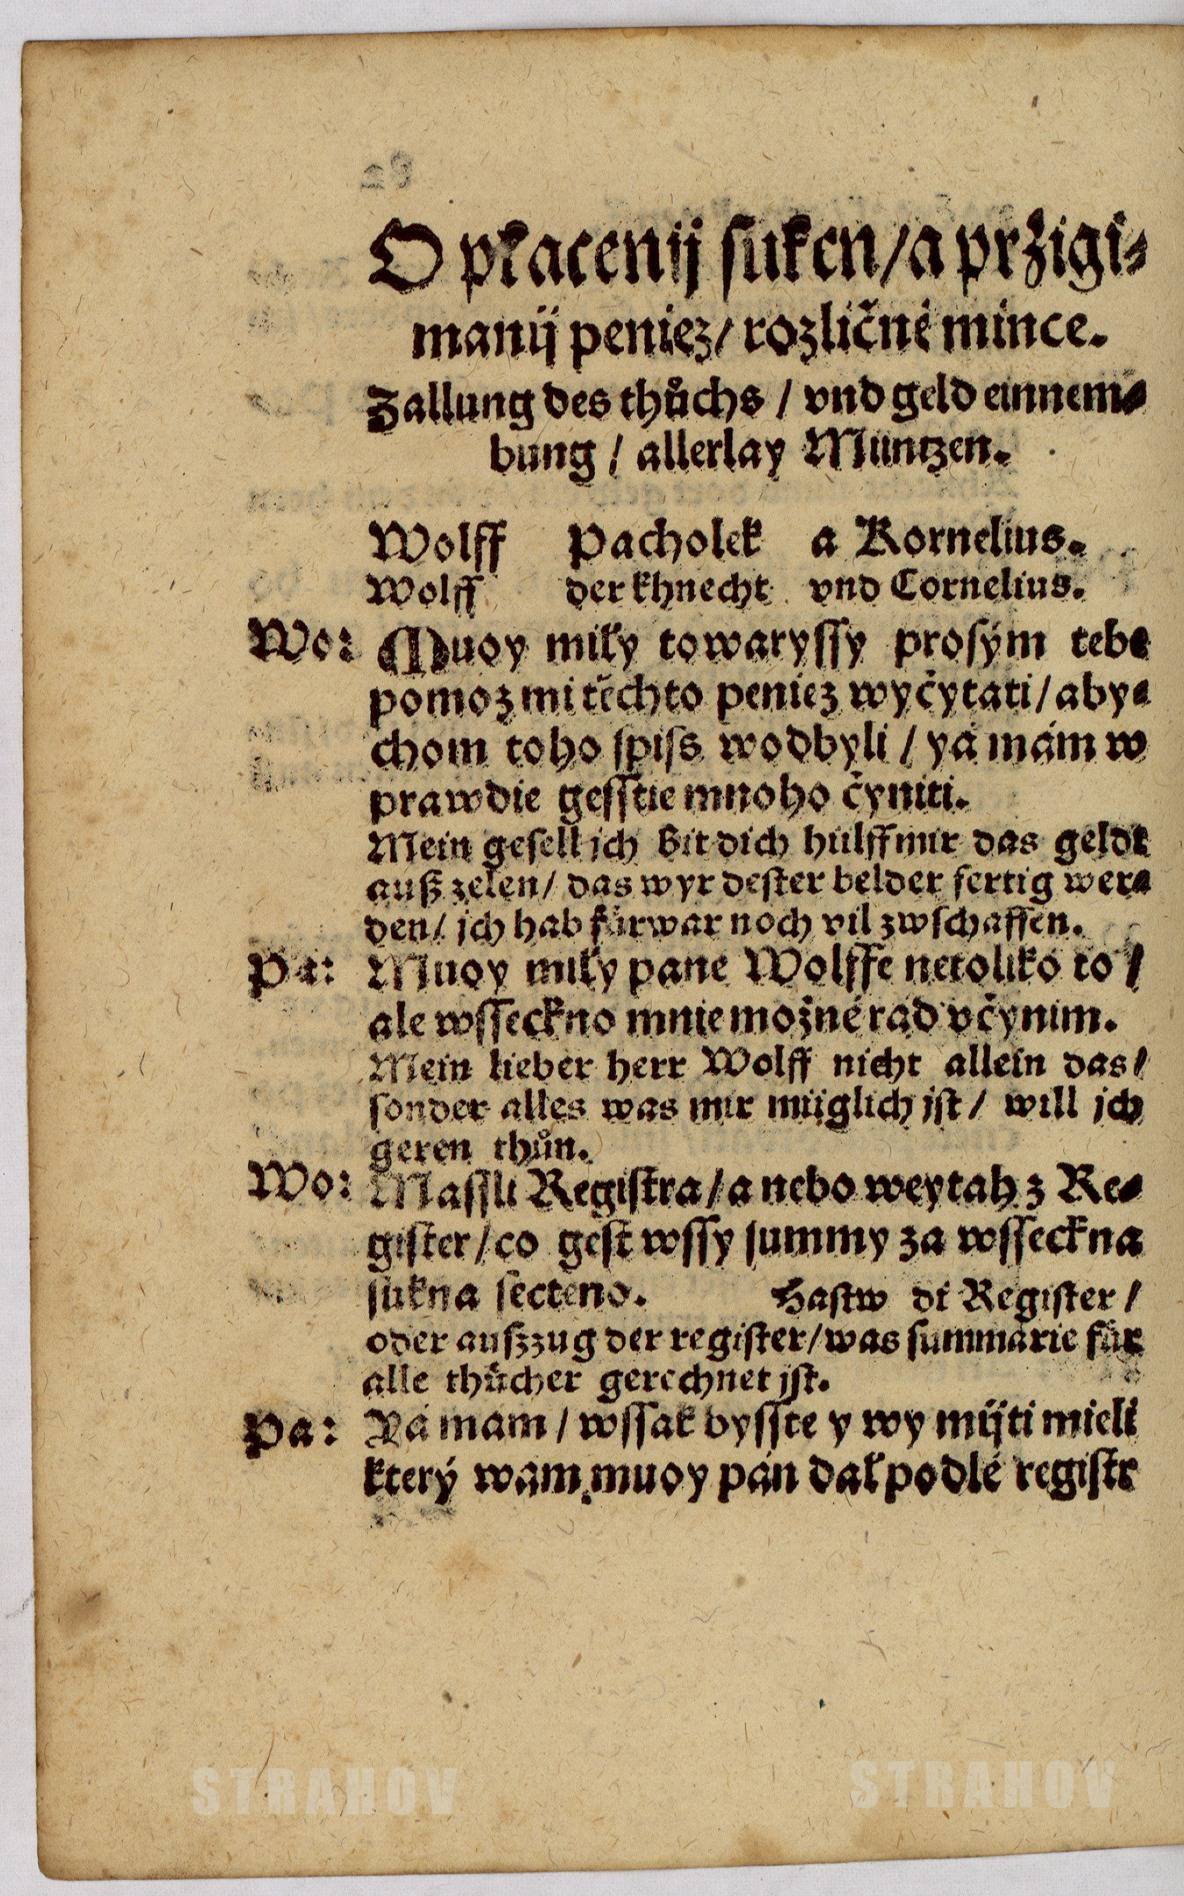 O płacenij suken/a pržigi⸗
manij peniez/ rozličné mince.
Zallung des thůchs / vnd geld einnem⸗
bung / allerlay Müntzen.
Wolff Pacholek a Kornelius.
Wolff der khnecht vnd Cornelius.
Wo: Muoy miły towaryssy prosým tebe
pomoz mi těchto peniez wyčytati/ aby⸗
chom toho spiss wodbyli / yá mám w
prawdie gesstie mnoho čyniti.
Mein gesell jch bit dich hülff mir das geldt
auß zelen/ das wyr dester belder fertig wer⸗
den/ jch hab fürwar noch vil zwschaffen.
Pa: Muoy miły pane Wolffe netoliko to /
ale wsseckno mnie možné rád včynim.
Mein lieber herr Wolff nicht allein das/
sonder alles was mir müglich jst / will jch
geren thůn.
Wo: Massli Registra/ a nebo weytah z Re⸗
gister/co gest wssy summy za wsseckna
sukna secteno. Hastw di Register /
oder außzug der register/was summarie für
alle thücher gerechnet jst.
Pa: Yá mam / wssak bysste y wy mijti mieli
který wam muoy pán dał podlé registr
STRAHOV STRAHOV